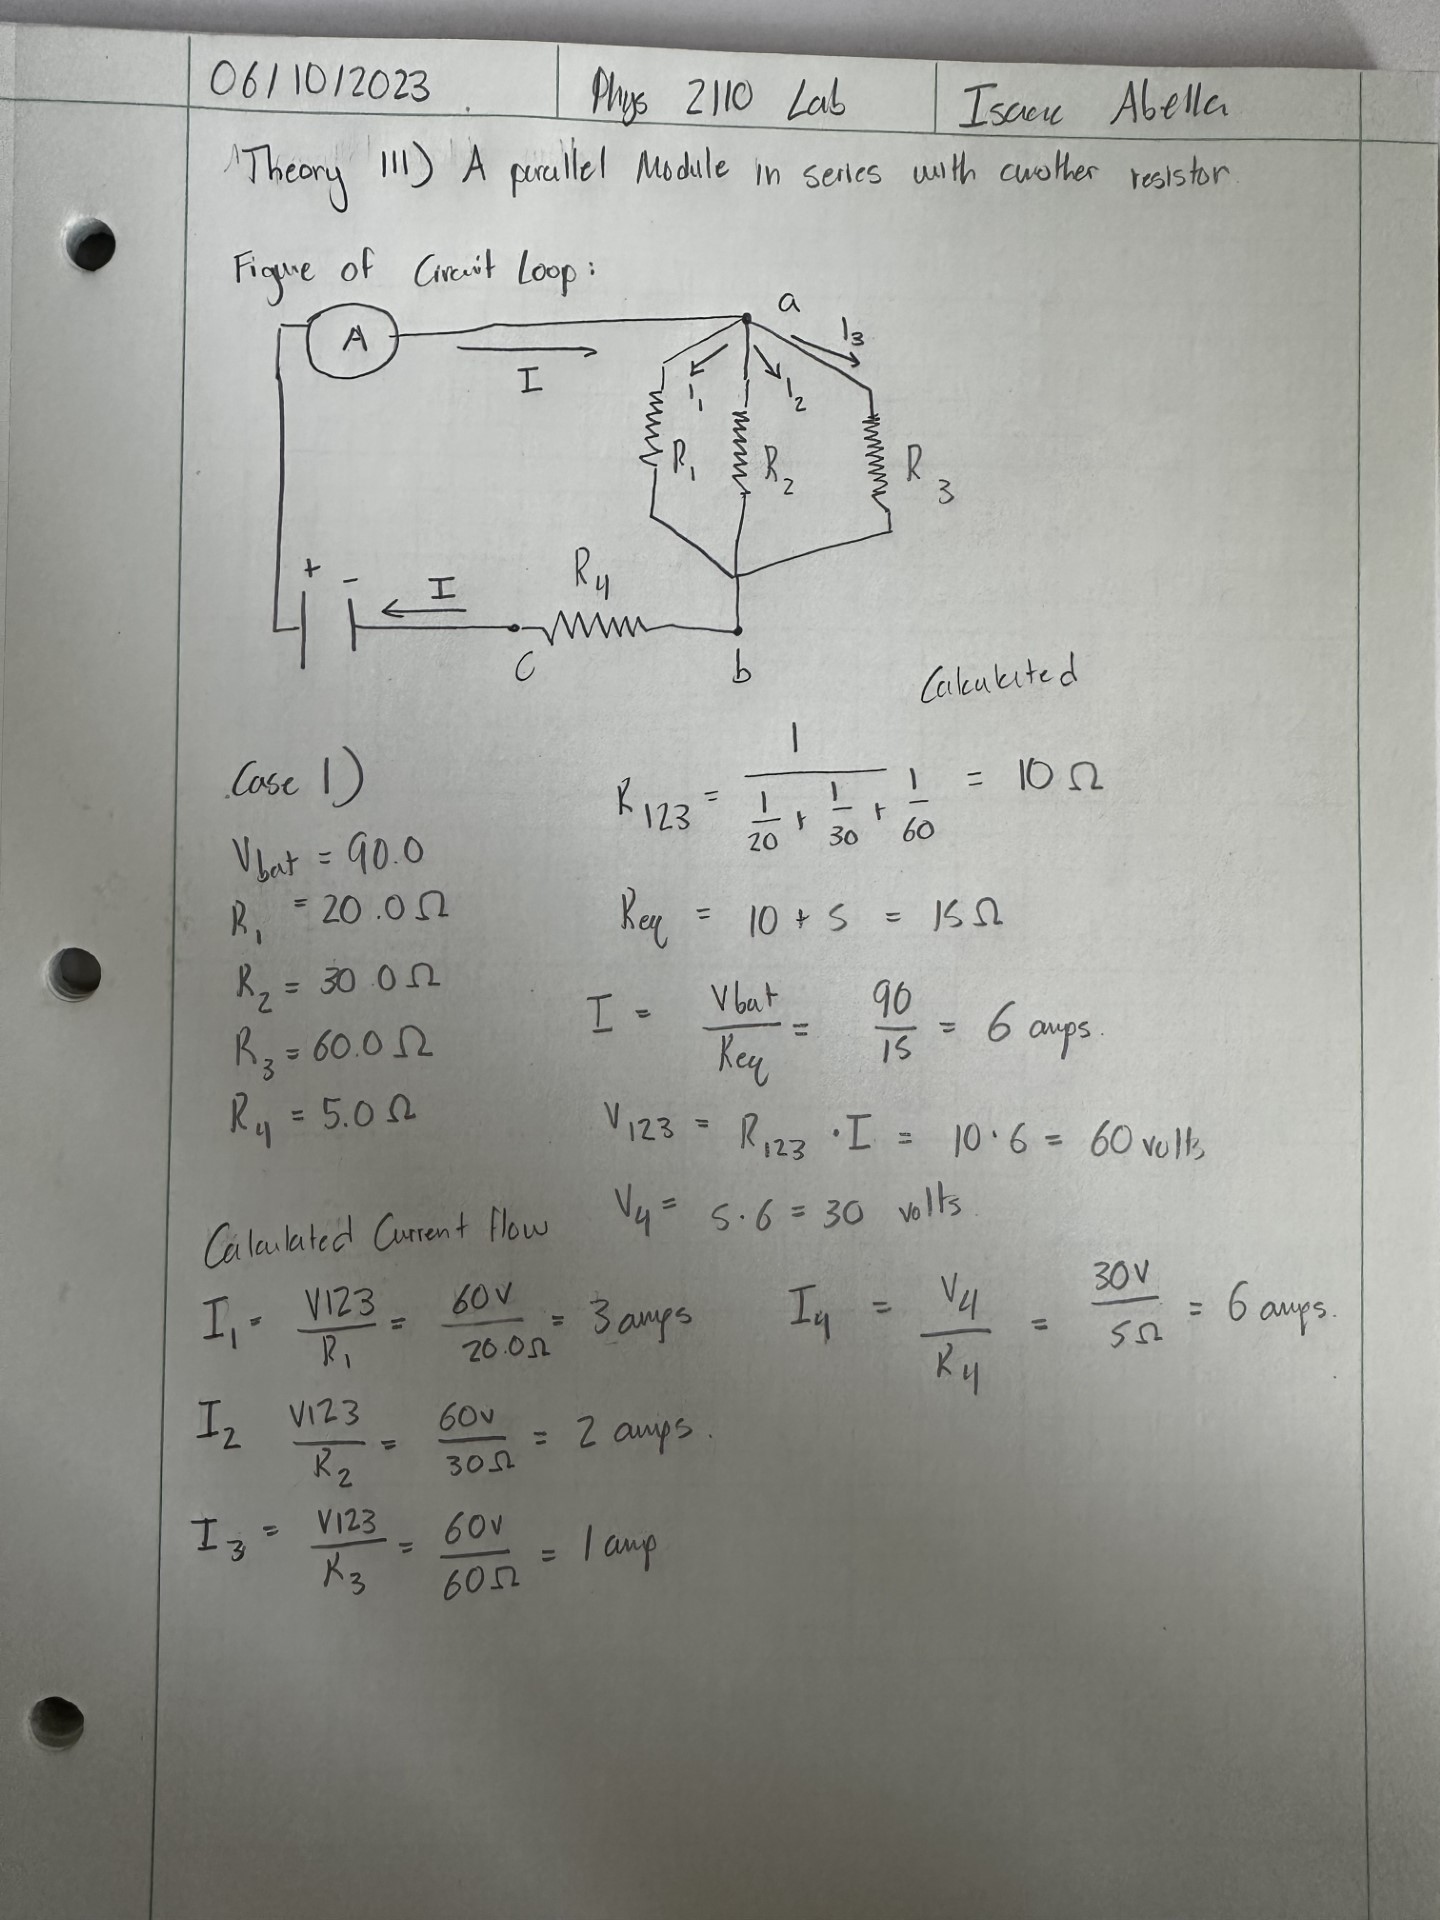 06/10/2023 Phys 2110 Lab Isaac Abella
Theory III) A parallel Module in series with another resistor.
Figure of Circuit Loop:
a
A
I
I₁
I₂
I₃
R₁
R₂
R₃
+ -
I
R₄
c
b
Calculated
Case 1)
R₁₂₃ = 1 / (1/20 + 1/30 + 1/60) = 10 Ω
Vbat = 90.0
R₁ = 20.0 Ω
Req = 10 + 5 = 15 Ω
R₂ = 30.0 Ω
I = Vbat/Req = 90/15 = 6 amps.
R₃ = 60.0 Ω
R₄ = 5.0 Ω
V₁₂₃ = R₁₂₃ · I = 10 · 6 = 60 volts
V₄ = 5 · 6 = 30 volts
Calculated Current flow
I₁ = V123/R₁ = 60V/20.0Ω = 3 amps
I₄ = V₄/R₄ = 30V/5Ω = 6 amps.
I₂ V123/R₂ = 60V/30Ω = 2 amps.
I₃ = V123/R₃ = 60V/60Ω = 1 amp